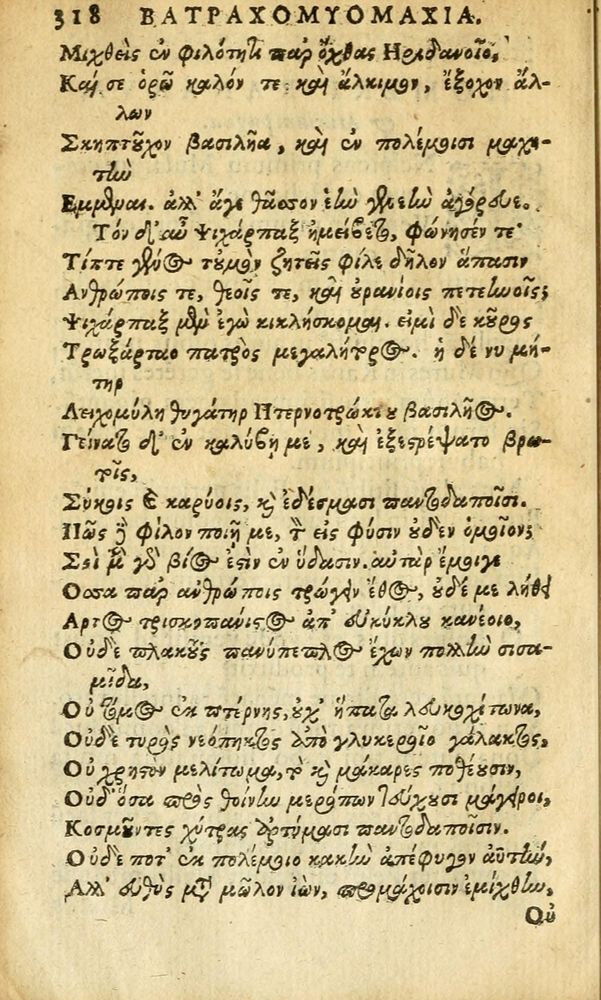 318 ΒΑΤΡΑΧΟΜΥΟΜΑΧΙΑ.
Μιχθεὶς ἐν φιλότητι παρ ὄχθας Ηριδανοῖο,
Καί σε ὁρῶ καλόν τε καὶ ἄλκιμον, ἔξοχον ἄλ-
λων
Σκηπτοῦχον βασιλῆα, καὶ ἐν πολέμοισι μαχη-
τὼ
Εμμεναι. ἀλλ' ἄγε θᾶσσον ἑὼ γενεὼ ἀγόρευε.
Τόν δ' αὖ Ψιχάρπαξ ἠμείβετο, φώνησέν τε·
Τίπτε γένος τοὐμὸν ζητεῖς φίλε δῆλον ἅπασιν
Ανθρώποις τε, θεοῖς τε, καὶ οὐρανίοις πετεωοῖς;
Ψιχάρπαξ μὲν ἐγὼ κικλήσκομαι. εἰμὶ δὲ κοῦρος
Τρωξάρταο πατρὸς μεγαλήτορος. ἡ δέ νυ μή-
τηρ
Λειχομύλη θυγάτηρ Πτερνοτρώκτου βασιλῆος.
Γείνατο δ' ἐν καλύβῃ με, καὶ ἐξεθρέψατο βρω-
τοῖς,
Σύκοις καὶ καρύοις, καὶ ἐδέσμασι παντοδαποῖσι.
Πῶς δὲ φίλον ποιῇ με, τὸν εἰς φύσιν οὐδὲν ὁμοῖον;
Σοὶ μὲν γὰρ βίος ἐστὶν ἐν ὕδασιν. αὐτὰρ ἔμοιγε
Οσσα παρ ἀνθρώποις τρώγειν ἔθος, οὐδέ με λήθει
Αρτος τρισκοπάνιστος ἀπ' εὐκύκλου κανέοιο,
Οὐδὲ πλακοῦς τανύπεπλος ἔχων πολλὼ σισα-
μῖδα,
Οὐ τόμος ἐκ πτέρνης, οὐχ' ἥπατα λευκοχίτωνα,
Οὐδὲ τυρὸς νεόπηκτος ἀπὸ γλυκεροῖο γάλακτος,
Οὐ χρηστὸν μελίτωμα, τὸ καὶ μάκαρες ποθέουσιν,
Οὐδ' ὅσα πρὸς θοίνω μερόπων τεύχουσι μάγειροι,
Κοσμοῦντες χύτρας ἀρτύμασι παντοδαποῖσιν.
Οὐδέ ποτ' ἐκ πολέμοιο κακὼ ἀπέφυγον ἀϋτὼ,
Αλλ' εὐθὺς μετὰ μῶλον ἰὼν, προμάχοισιν ἐμίχθω,
Οὐ